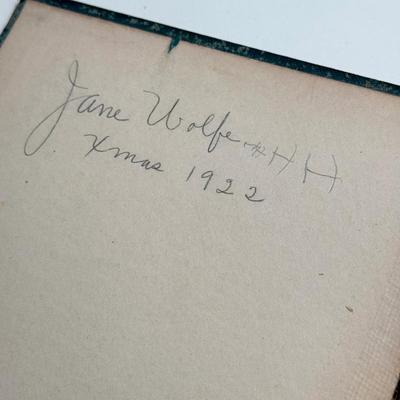 Jane Wolfe HH
Xmas 1922